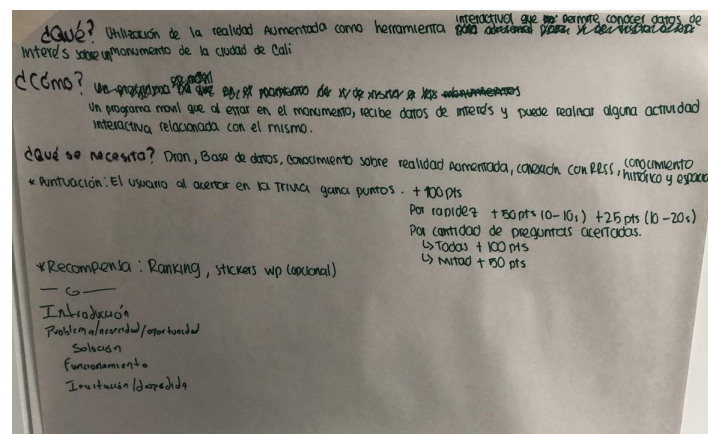 ¿Qué? Utilización de la realidad Aumentada como herramienta interactiva que permite conocer datos de
interés sobre un monumento de la ciudad de Cali
¿Cómo?
Un programa movil que al estar en el monumento, recibe datos de interés y puede realizar alguna actividad
interactiva relacionada con el mismo.
¿Qué se necesita? Dron, Base de datos, conocimiento sobre realidad Aumentada, conexión con RRSS, conocimiento
histórico y espacial
* Puntuación: El usuario al acertar en la Trivia gana puntos. + 100 pts
Por rapidez +50 pts (0-10s) +25 pts (10-20s)
Por cantidad de preguntas acertadas.
↳ Todas + 100 pts
↳ Mitad + 50 pts
* Recompensa: Ranking, stickers wp (opcional)
Introducción
Problema/necesidad/oportunidad
Solución
Funcionamiento
Invitación/despedida